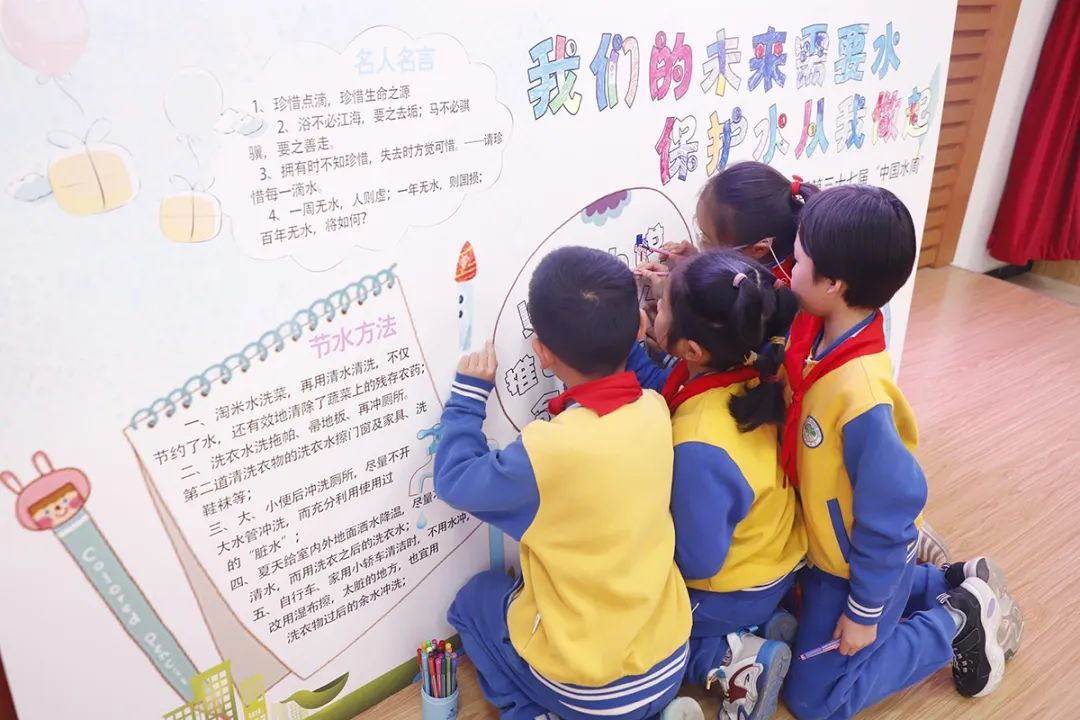 我们的未来需要水
保护水从我做起
第三十七届“中国水周”
名人名言
1、珍惜点滴，珍惜生命之源
2、浴不必江海，要之去垢；马不必骐
骥，要之善走。
3、拥有时不知珍惜，失去时方觉可惜。——请珍
惜每一滴水。
4、一周无水，人则虚；一年无水，则国损；
百年无水，将如何？
推
节水方法
一、淘米水洗菜，再用清水清洗，不仅
节约了水，还有效地清除了蔬菜上的残存农药；
二、洗衣水洗拖帕、帚地板、再冲厕所。
第二道清洗衣物的洗衣水擦门窗及家具、洗
鞋袜等；
三、大、小便后冲洗厕所，尽量不开
大水管冲洗，而充分利用使用过
的“脏水”；
四、夏天给室内外地面洒水降温，尽量
清水，而用洗衣之后的洗衣水；
五、自行车、家用小轿车清洁时，不用水冲，
改用湿布擦，太脏的地方，也宜用
洗衣物过后的余水冲洗；
Colored Pencil